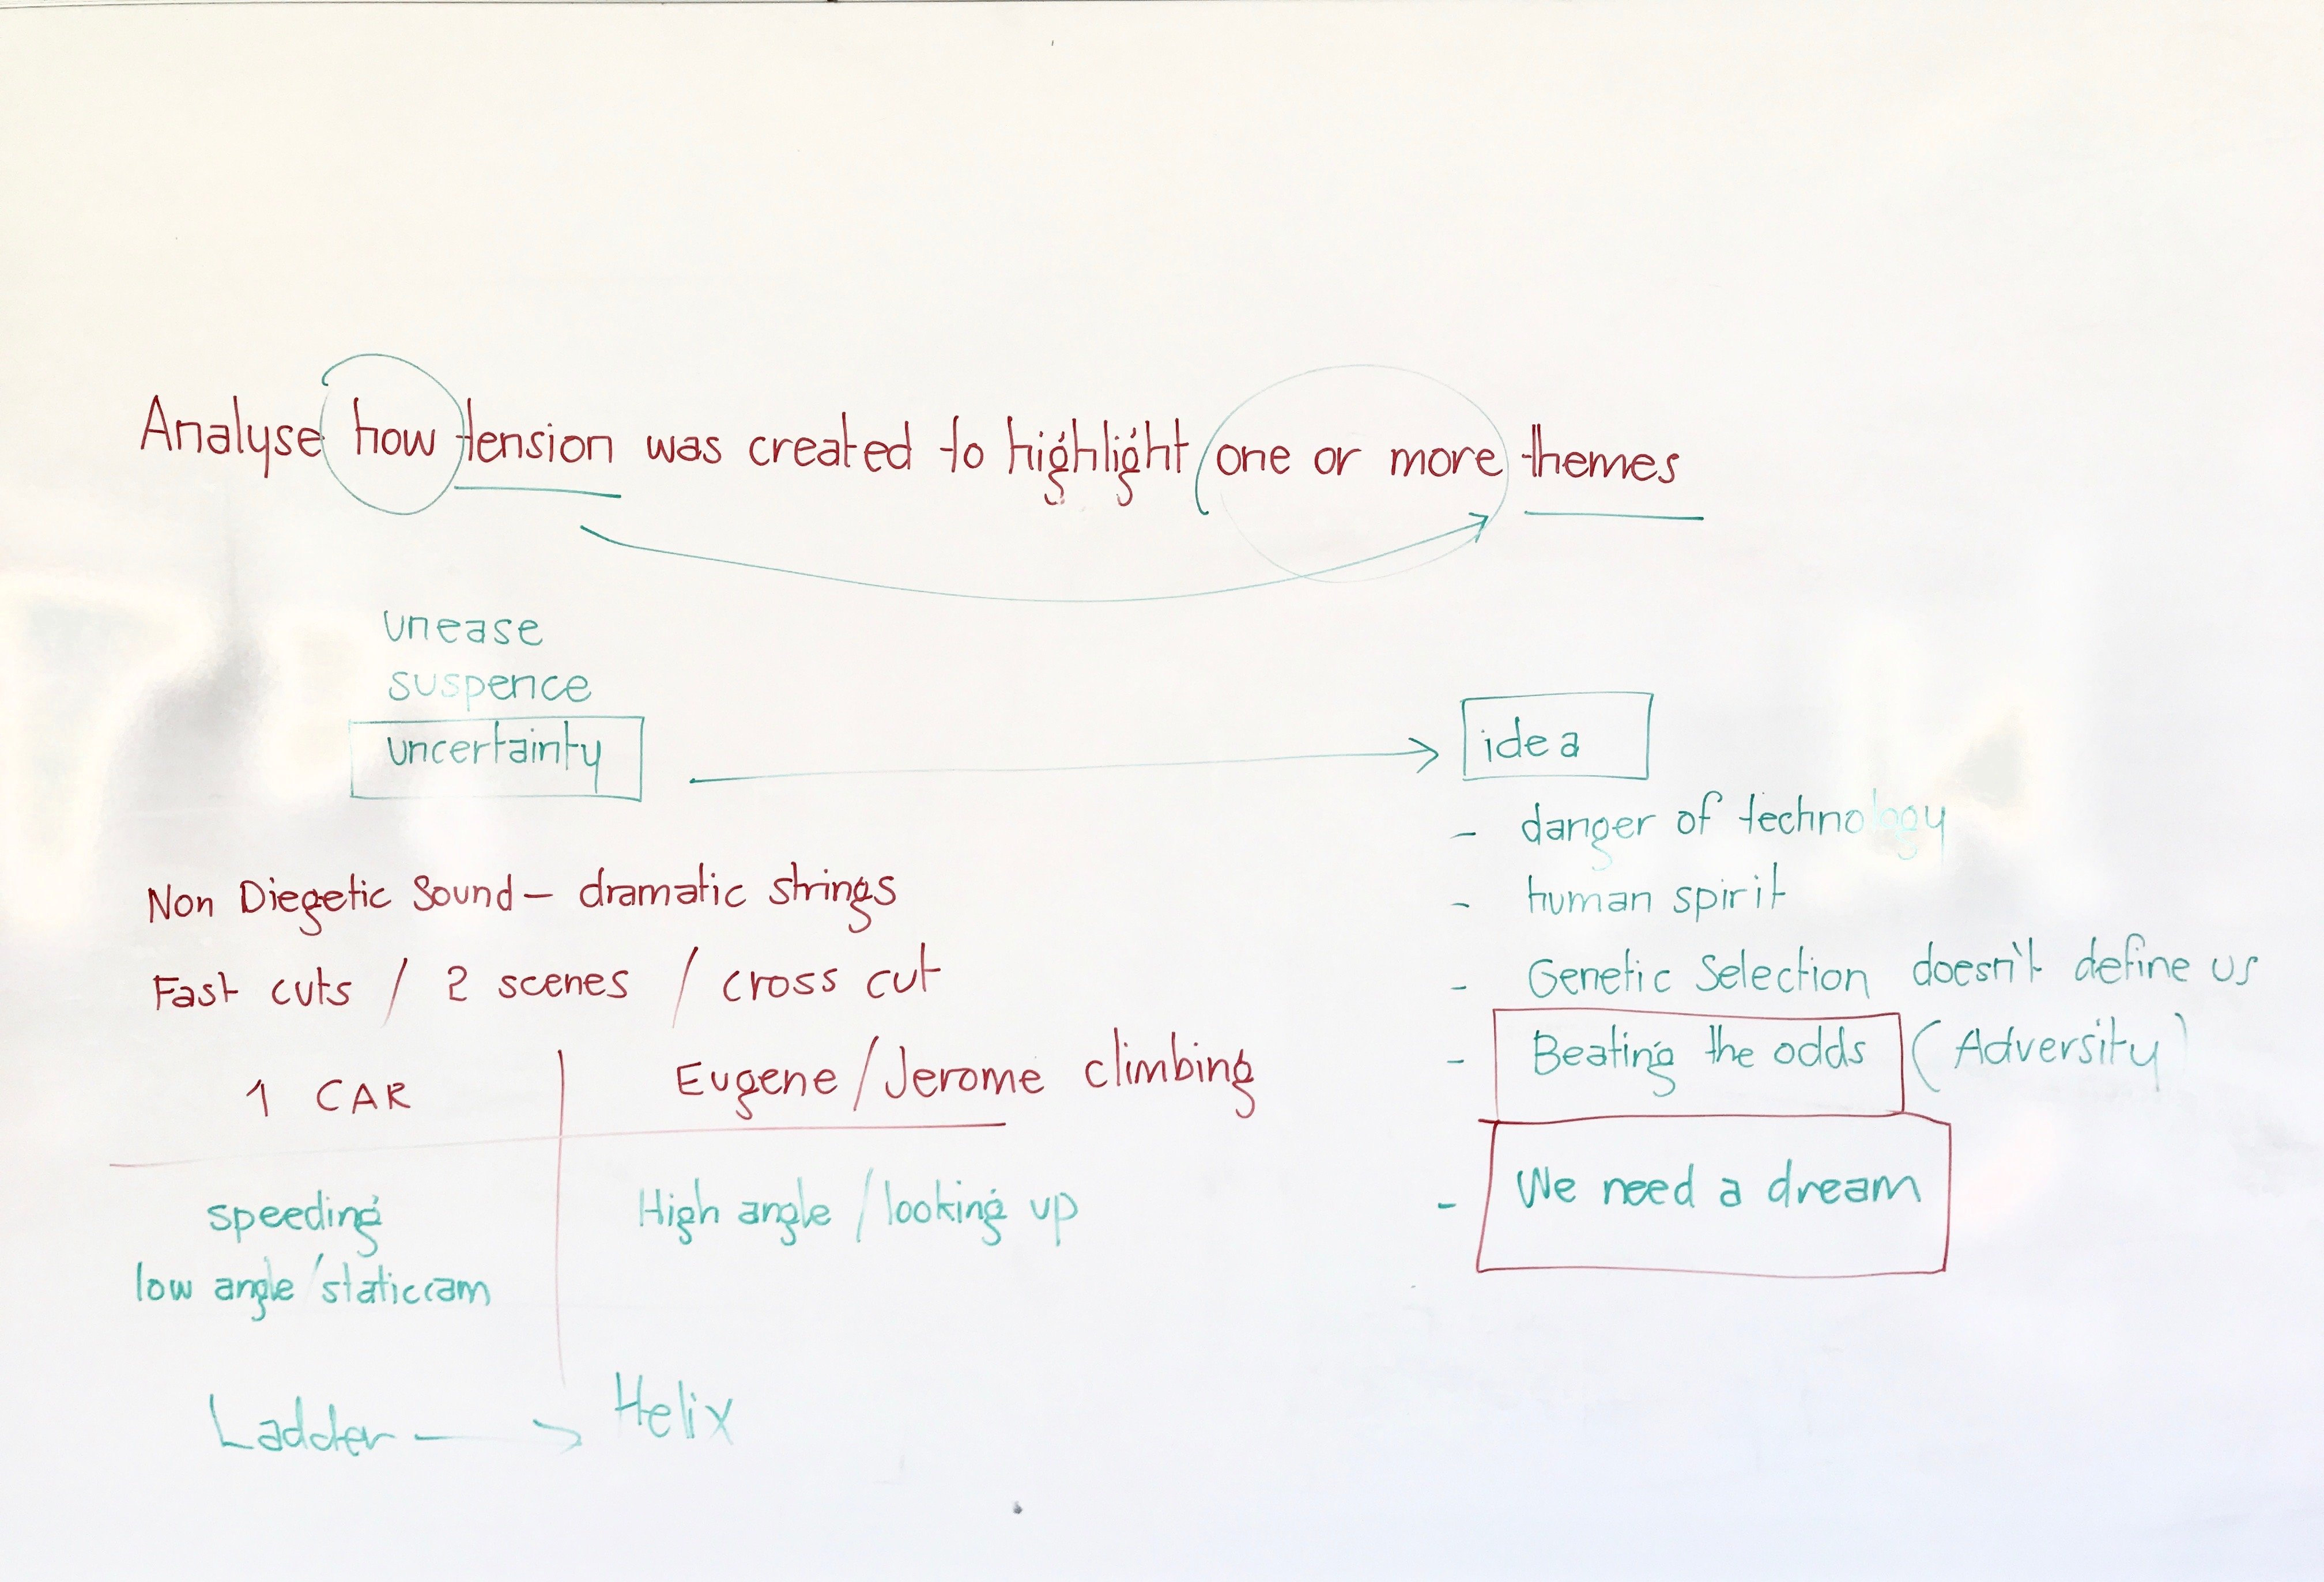 Analyse how tension was created to highlight one or more themes
unease
suspence
uncertainty
idea
- danger of technology
- human spirit
- Genetic Selection doesn't define us
- Beating the odds (Adversity)
- We need a dream
Non Diegetic Sound – dramatic strings
Fast cuts / 2 scenes / cross cut
1 CAR
Eugene/Jerome climbing
speeding
low angle/static cam
High angle / looking up
Ladder → Helix